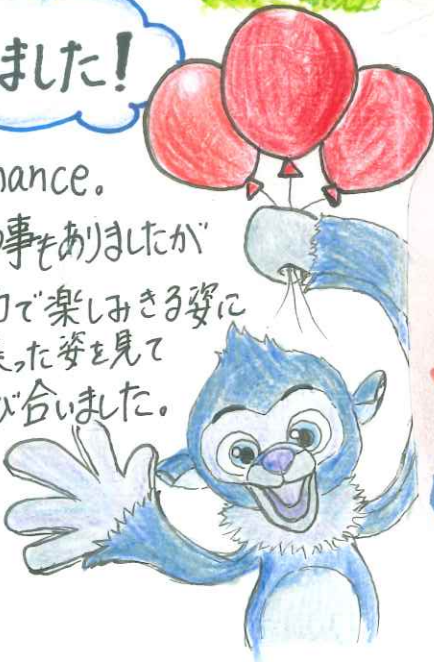 ました!
nance。
事もありましたが
で楽しみきる姿に
った姿を見て
び合いました。